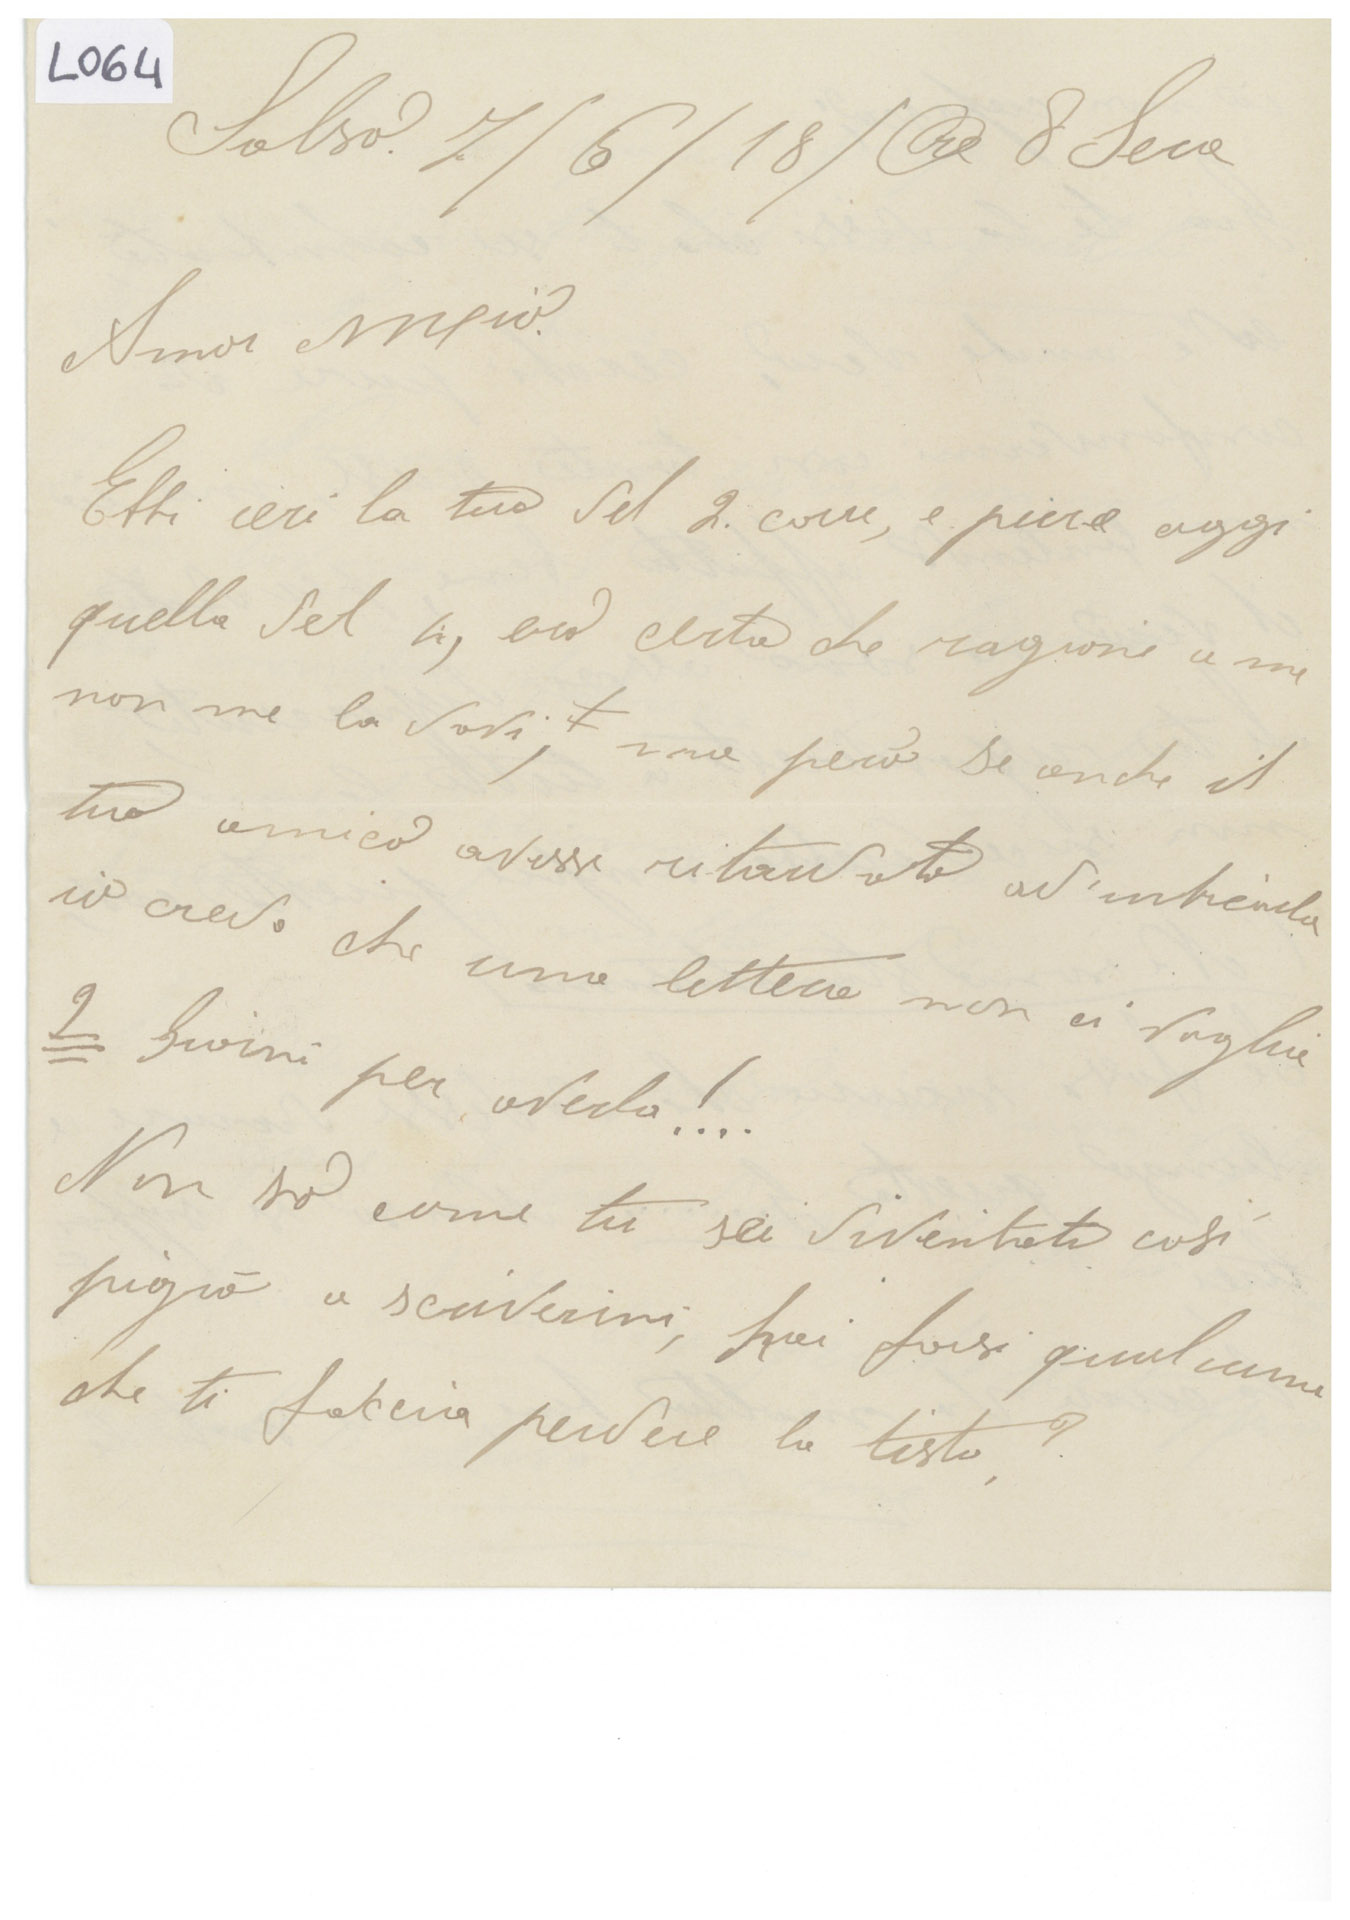 L064
Salso. 7/6/18/Ore 8 Sera
Amor Mio.
Ebbi ieri la tua del 2. corr, e pure oggi
quella del 4, ero certa che ragione a me
non me la davi, ma però se anche il
tuo amico avesse ritardato ad'imbucarla
io credo che una lettera non ci voglia
2 Giorni per averla!....
Non sò come tu sei diventato così
pigro a scrivermi, hai forsi qualcuna
che ti faccia perdere la tista,?